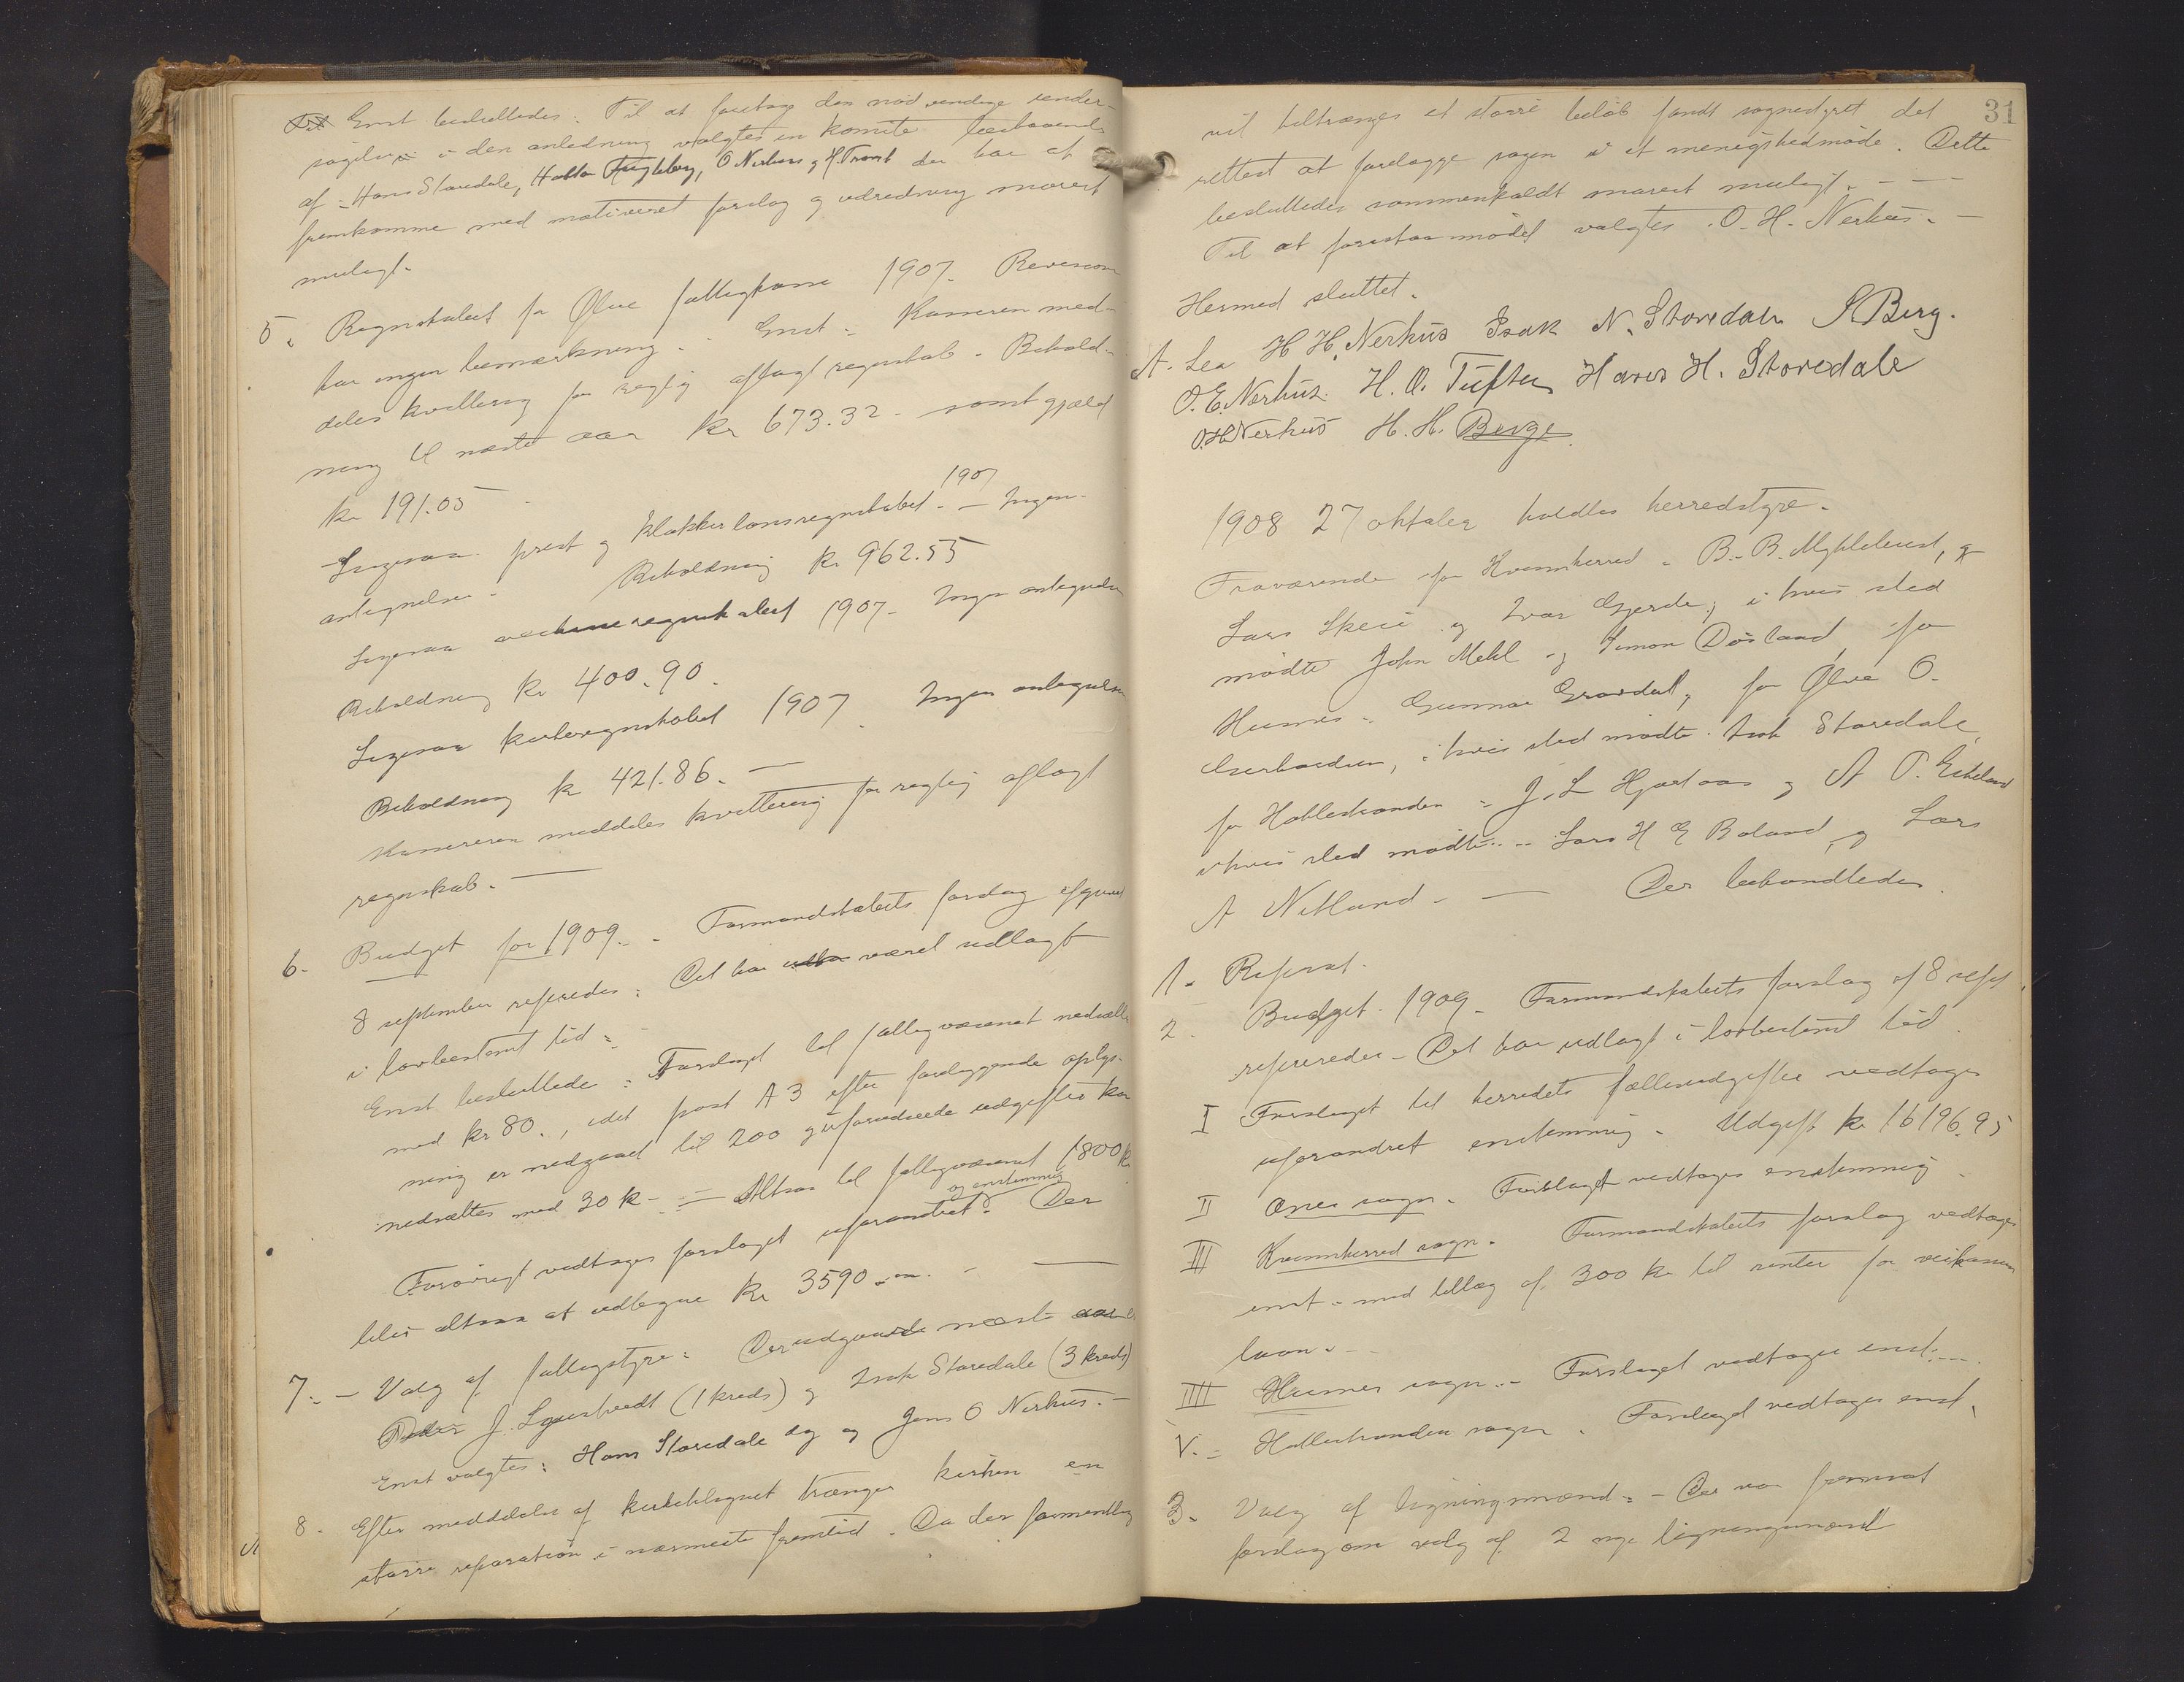 Enst besluttedes: Til at foretage den nødvendige under-
søgelse i den anledning valgtes en komite bestaaende
af: Hans Storedale, O Nerhus og H. Tveit der har at
fremkomme med motiveret forslag og udredning snarest
muligt.
5. Regnskabet for Ølve fattigkasse 1907. Revisionen
har ingen bemærkning. Enst: Kasseren med-
deles kvittering for rigtig aflagt regnskab. Behold-
ning til næste aar kr 673.32 - samt gjæld
kr 191.05
Ligesaa prest og klokkerlønsregnskabet 1907 - Ingen
antegnelse - Beholdning kr 962.55
Ligesaa regnskabet 1907 - Ingen antegnelse
Beholdning kr 400.90.
Ligesaa kirkeregnskabet 1907. Ingen antegnelse
Beholdning kr 421.86. -
Kassereren meddeles kvittering for rigtig aflagt
regnskab. -
6. Budget for 1909. - Formandskabets forslag af
8 september refereredes: Det har været udlagt
i lovbestemt tid:
Enst besluttede: Forslaget til fattigvæsenet nedsættes
med kr 80., idet post A 3 efter foreliggende oplys-
ning er nedgaaet til 200 og uforudseede udgifter kan
nedsættes med 30 k - Altsaa til fattigvæsenet 1800 k.
Forøvrigt vedtages forslaget uforandret og enstemmig. Der
blir altsaa at udligne kr 3590 -
7. - Valg af fattigstyre: Der udgaar næste
Peder J. (1 kreds) og Isak Storedale (3 kreds)
Enst valgtes: Hans Storedale og Jens O Nerhus. -
8. Efter meddelelse af kirketilsynet trænger kirken en
større reparation i nærmeste fremtid. Da der formentlig
31
vil tiltrænges et større beløb fandt sognestyret det
rettest at forelægge sagen i et menighedsmøde. Dette
besluttedes sammenkaldt snarest muligt. - -
Til at forestaa mødet valgtes O. H. Nerhus. -
Hermed sluttet.
A. Lea H H. Nerhus Isak N. Storedale S Berg.
O. E. Nerhus. H. O. Tuften Hans H. Storedale
O. H. Nerhus H. H. Berge
1908 27 oktober holdtes herredstyre.
Fraværende for Kvinnherred - B. B. Myklebust,
Lars Skeie og Ivar Gjerde; i hvis sted
mødte John Mehl og Simon Døsland, for
Husnes - Gunnar Gravdal, for Ølve O.
i hvis sted mødte Isak Storedale,
for Hatlestranden - J. L Hjortaas og A P. Eikeland
i hvis sted mødte - Lars H E Boland og Lars
A Netland - - Der behandledes
1. Referat.
2. Budget 1909 - Formandskabets forslag af 8 sept.
refereredes - Det har udlagt i lovbestemt tid.
I Forslaget til herredets fællesudgifter vedtages
uforandret enstemmig. Udgift kr 16196.95
II Ænes sogn. Forslaget vedtages enstemmig.
III Kvinnherred sogn. Formandskabets forslag vedtages
enst - med tillæg af 300 kr til renter for veikasse
laan. -
IIII Husnes sogn. - Forslaget vedtages enst. -
V. - Hatlestranden sogn. Forslaget vedtages enst.
3. Valg af ligningsmænd: - Der var fremsat
forslag om valg af 2 nye ligningsmænd